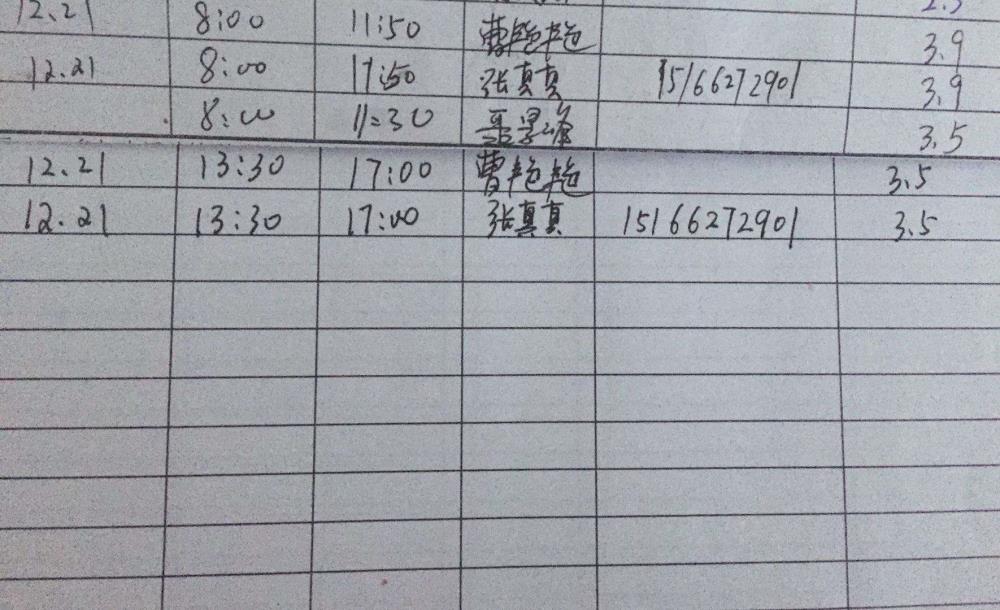 12.21 8:00 11:50 曹艳艳 3.9
12.21 8:00 11:50 张真真 15166272901 3.9
8:00 11:30 3.5
12.21 13:30 17:00 曹艳艳 3.5
12.21 13:30 17:00 张真真 15166272901 3.5